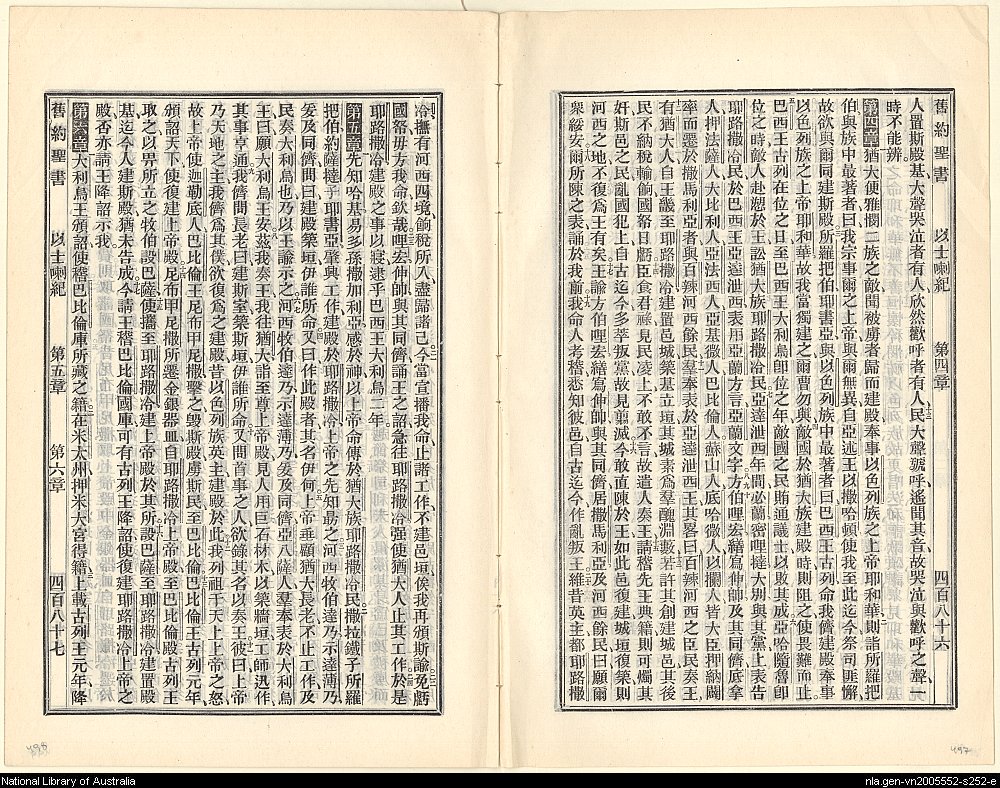 舊約聖書 以士喇紀 第四章 四百八十六
人置斯殿基大聲哭泣者有人欣然歡呼者有人民大聲號呼遙聞其音故哭泣與歡呼之聲一
時不能辨
第四章猶大便雅憫二族之敵聞被虜者歸而建殿奉事以色列族之上帝耶和華則詣所羅把
伯與族中最著者曰我宗事爾之上帝與爾無異自亞述王以撒哈頓使我至此迄今祭司匪懈
故欲與爾同建斯殿所羅把伯耶書亞與以色列族中最著者曰巴西王古列命我儕建殿奉事
以色列族之上帝耶和華故我當獨建之爾曹勿與敵國於猶大族建殿時則阻之使畏難而止
巴西王古列在位之日至巴西王大利烏即位之年敵國之民賄通議士以敗其成亞哈隨魯即
位之時敵人赴愬於王訟猶大族耶路撒冷民亞達泄西年間必蘭密哩撻大別與其黨上表告
耶路撒冷民於巴西王亞達泄西表用亞蘭方言亞蘭文字方伯哩宏繕寫伸帥及其同儕底拿
人押法薩人大比利人亞法西人亞基微人巴比倫人蘇山人底哈微人以攔人皆大臣押納闊
率而遷於撒馬利亞者與百辣河西餘民羣奏表於亞達泄西王其畧曰百辣河西之臣民奏王
有猶大人自王畿至耶路撒冷建置邑城築基立垣其城素爲羣醜淵藪若許其創建城邑其後
民不納稅輸餉國帑日虧臣食君祿見民凌上不敢不言故遣人奏王請稽先王典籍則可燭其
奸斯邑之民亂國犯上自古迄今多莘叛黨故見翦滅今敢直陳於王如此邑復建城垣復築則
河西之地不復爲王有矣王諭方伯哩宏繕寫伸帥與其同儕居撒馬利亞及河西餘民曰願爾
衆綏安爾所陳之表誦於我前我命人考稽悉知彼邑自古迄今作亂叛王維昔英主都耶路撒
冷撫有河西四境餉稅所入盡歸諸己今當宣播我命止諸工作不建邑垣俟我再頒斯諭免虧
國帑毋方我命欽哉哩宏伸帥與其同儕誦王之詔急往耶路撒冷强使猶大人止其工作於是
耶路撒冷建殿之事以寢逮乎巴西王大利烏二年
第五章先知哈基易多孫撒加利亞感於神以上帝命傳於猶大族耶路撒冷民撒拉鐵子所羅
把伯約薩撻子耶書亞興工作建殿於耶路撒冷上帝之先知勗之河西牧伯達乃示達薄乃
爰及同儕間曰建殿築垣伊誰所命又曰作此殿者其名伊何上帝垂顧猶大長老不止工作及
民奏大利烏也乃以王諭示之河西牧伯達乃示達薄乃爰及同儕亞八薩人羣奉表於大利烏
王曰願大利烏王安茲我奏王我往猶大詣至尊上帝殿見人用巨石材木以築牆垣工師迅作
其事亨通我儕間長老曰建斯室築斯垣伊誰所命又問首事之人欲錄其名以奏王彼曰上帝
乃天地之主我儕爲其僕欲復爲之建殿昔以色列族英主建殿於此我列祖干天上上帝之怒
故上帝使迦勒底人巴比倫王尼布甲尼撒擊之毀斯殿虜斯民至巴比倫巴比倫王古列元年
頒詔天下使復建上帝殿尼布甲尼撒所遷金銀器皿自耶路撒冷上帝殿至巴比倫殿古列王
取之以畀所立之牧伯設巴薩使攜至耶路撒冷建上帝殿於其所設巴薩至耶路撒冷建置殿
基迄今人建斯殿猶未告成今請王稽巴比倫國庫可有古列王降詔使復建耶路撒冷上帝之
殿否亦請王降詔示我
第六章大利烏王頒詔使稽巴比倫庫所藏之籍在米太州押米大宮得籍上載古列王元年降
舊約聖書 以士喇紀 第五章 第六章 四百八十七
498
497
National Library of Australia
nla.gen-vn2005552-s252-e